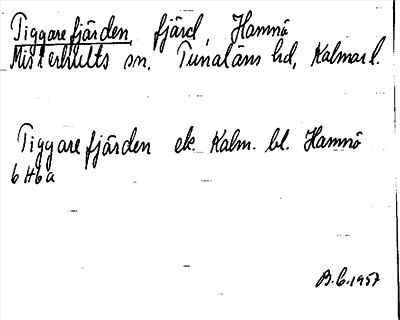 Tiggarefjärden, fjärd, Hamnö
Misterhults sn. Tunaläns hd, Kalmar l.
Tiggarefjärden ek. Kalm. bl. Hamnö
6 H 6 a
B.C. 1957